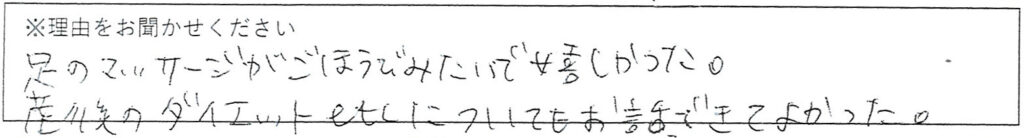 ※理由をお聞かせください
足のマッサージがごほうびみたいで嬉しかった。
産後のダイエットetcについてもお話できてよかった。